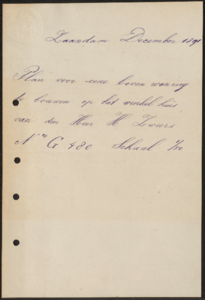 Zaandam December 189
Plan voor eene boven woning
te bouwen op het winkel huis
van den Heer H
No G 480 Schaal